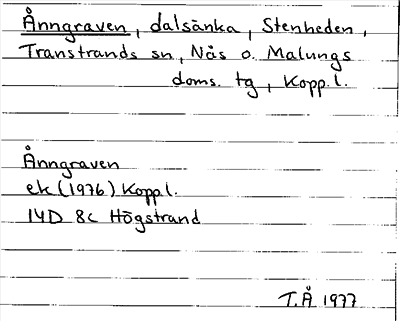 Ånngraven, dalsänka, Stenheden,
Transtrands sn, Nås o. Malungs
doms. tg, Kopp. l.
Ånngraven
ek (1976) Kopp l.
14D 8c Högstrand
T.Å 1977